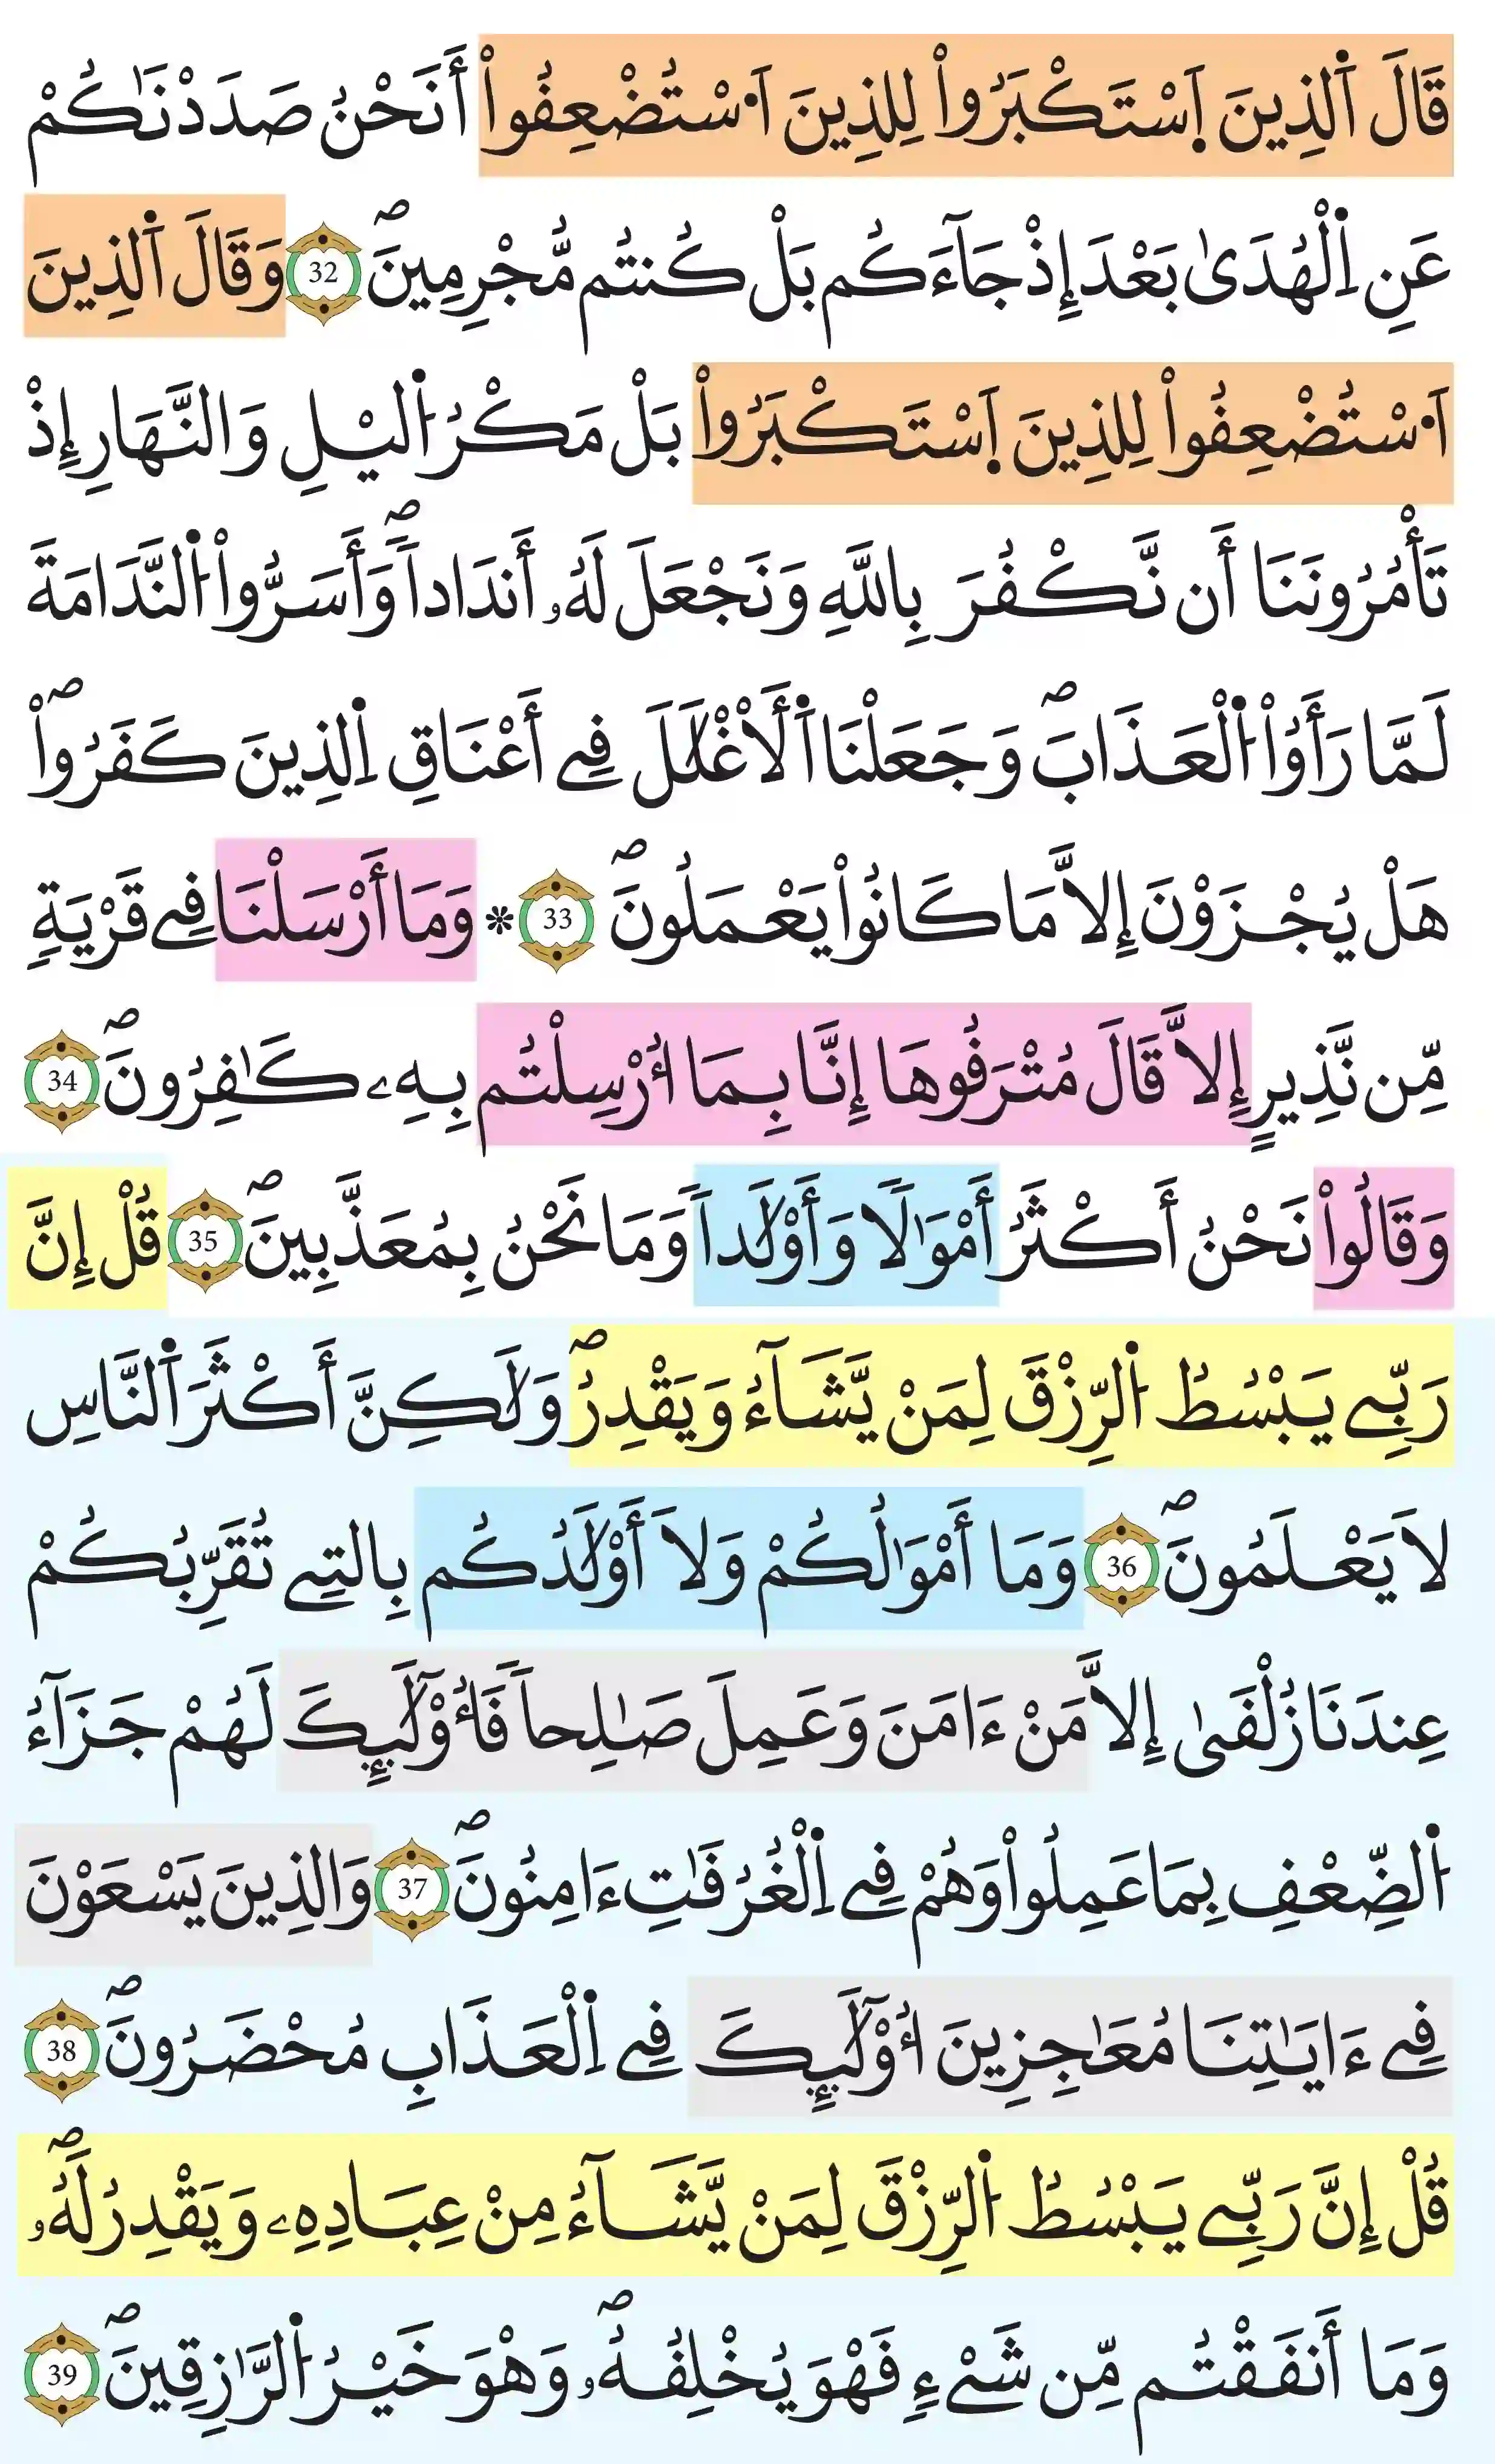 قَالَ اَ۬لذِينَ اَ۪سْتَكْبَرُواْ لِلذِينَ اَ۟سْتُضْعِفُواْ أَنَحْنُ صَدَدْنَٰكُمْ
عَنِ اِ۬لْهُدَىٰ بَعْدَ إِذْ جَآءَكُم بَلْ كُنتُم مُّجْرِمِينَۖ 32 وَقَالَ اَ۬لذِينَ
اَ۟سْتُضْعِفُواْ لِلذِينَ اَ۪سْتَكْبَرُواْ بَلْ مَكْرُ اُ۬ليْلِ وَالنَّهَارِ إِذْ
تَأْمُرُونَنَا أَن نَّكْفُرَ بِاللَّهِ وَنَجْعَلَ لَهُۥ أَندَاداٗۖ وَأَسَرُّواْ اُ۬لنَّدَامَةَ
لَمَّا رَأَوُاْ اُ۬لْعَذَابَۖ وَجَعَلْنَا اَ۬لَاغْلَٰلَ فِے أَعْنَاقِ اِ۬لذِينَ كَفَرُواْۖ
هَلْ يُجْزَوْنَ إِلاَّ مَا كَانُواْ يَعْمَلُونَۖ 33 * وَمَا أَرْسَلْنَا فِے قَرْيَةٖ
مِّن نَّذِيرٍ إِلاَّ قَالَ مُتْرَفُوهَا إِنَّا بِمَا أُرْسِلْتُم بِهِۦ كَٰفِرُونَۖ 34
وَقَالُواْ نَحْنُ أَكْثَرُ أَمْوَٰلاٗ وَأَوْلَٰداٗ وَمَا نَحْنُ بِمُعَذَّبِينَۖ 35 قُلْ إِنَّ
رَبِّے يَبْسُطُ اُ۬لرِّزْقَ لِمَنْ يَّشَآءُ وَيَقْدِرُۖ وَلَٰكِنَّ أَكْثَرَ اَ۬لنَّاسِ
لاَ يَعْلَمُونَۖ 36 وَمَا أَمْوَٰلُكُمْ وَلاَ أَوْلَٰدُكُم بِالتِے تُقَرِّبُكُمْ
عِندَنَا زُلْفَىٰ إِلاَّ مَنْ ءَامَنَ وَعَمِلَ صَٰلِحاٗ فَأُوْلَٰٓئِكَ لَهُمْ جَزَآءُ
اُ۬لضِّعْفِ بِمَا عَمِلُواْ وَهُمْ فِے اِ۬لْغُرُفَٰتِ ءَامِنُونَۖ 37 وَالذِينَ يَسْعَوْنَ
فِے ءَايَٰتِنَا مُعَٰجِزِينَ أُوْلَٰٓئِكَ فِے اِ۬لْعَذَابِ مُحْضَرُونَۖ 38
قُلْ إِنَّ رَبِّے يَبْسُطُ اُ۬لرِّزْقَ لِمَنْ يَّشَآءُ مِنْ عِبَادِهِۦ وَيَقْدِرُ لَهُۥۖ
وَمَا أَنفَقْتُم مِّن شَےْءٖ فَهْوَ يُخْلِفُهُۥۖ وَهْوَ خَيْرُ اُ۬لرَّٰزِقِينَۖ 39